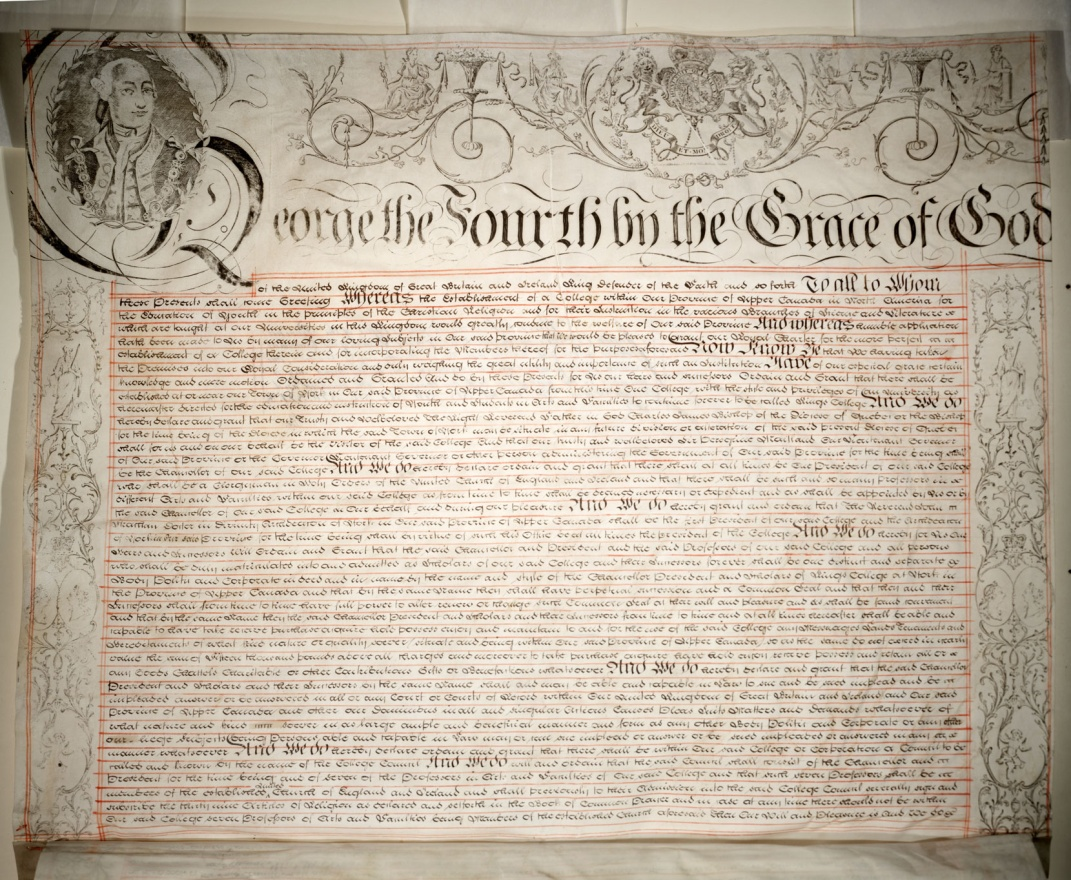 DIEU ET MON DROIT
George the Fourth by the Grace of God
of the United Kingdom of Great Britain and Ireland King Defender of the Faith and so forth To all to Whom
these Presents shall come Greeting Whereas the Establishment of a College within Our Province of Upper Canada in North America for
the Education of Youth in the principles of the Christian Religion and for their Instruction in the various Branches of Science and Literature
which are taught at our Universities in this Kingdom would greatly conduce to the welfare of Our said Province And whereas humble application
hath been made to Us by many of our loving Subjects in Our said province that We would be pleased to Grant our Royal Charter for the more perfect
establishment of a College therein and for incorporating the Members thereof for the purposes aforesaid Now Know Ye that We having taken
the Premises into our Royal Consideration and duly weighing the great utility and importance of such an Institution Have of our especial grace certain
knowledge and mere motion Ordained and Granted And do by these Presents for Us our Heirs and Successors Ordain and Grant that there shall be
established at or near our Town of York in Our said Province of Upper Canada from this time One College with the style and privileges of an University
hereinafter directed for the education and instruction of Youth and Students in Arts and Faculties to continue forever to be called Kings College And We do
hereby declare and grant that our Trusty and Welbeloved the Right Reverend Father in God Charles James Bishop of the Diocese of Quebec or the Bishop
for the time being of the Diocese in which the said Town of York may be situate in any future division or alteration of the said present Diocese of Quebec
shall for us and on our behalf be the Visitor of the said College And that our trusty and welbeloved Sir Peregrine Maitland Our Lieutenant Governor
of Our said Province or the Governor Lieutenant Governor or other person administering the Government of Our said Province for the time being shall
be the Chancellor of Our said College And We do hereby declare ordain and grant that there shall at all times be One President of our said College
who shall be a Clergyman in Holy Orders of the United Church of England and Ireland and that there shall be such and so many Professors in
different Arts and Faculties within our said College as from time to time shall be deemed necessary or expedient and as shall be appointed by Us or by
the said Chancellor of our said College in Our behalf and during our pleasure And We do hereby grant and ordain that the Reverend John
Strachan Doctor in Divinity Archdeacon of York in Our said Province of Upper Canada shall be the first President of our said College and the Archdeacon
of York in Our said Province for the time being shall by virtue of such his Office be at all times the president of the College And We do hereby for Us Our
Heirs and Successors Will Ordain and Grant that the said Chancellor and President and the said Professors of our said College and all persons
who shall be duly matriculated into and admitted as Scholars of our said College and their Successors forever shall be one distinct and separate
Body Politic and Corporate in deed and in name by the name and style of the Chancellor President and Scholars of Kings College at York in
the Province of Upper Canada and that by the same Name they shall have perpetual succession and a Common Seal and that they and their
Successors shall from time to time have full power to alter renew or change such Common Seal at their will and pleasure and as shall be found convenient
and that by the same Name they the said Chancellor President and Scholars and their Successors from time to time and at all times hereafter shall be able and
capable to have take receive purchase acquire hold possess enjoy and maintain to and for the use of the said College any Messuages Lands Tenements and
Hereditaments of what kind nature or quality soever situate and being within Our said province of Upper Canada so as the same do not exceed in yearly
value the sum of Fifteen thousand pounds above all charges and moreover to take purchase acquire have hold enjoy receive possess and retain all or
any Goods Chattels Charitable or other Contributions Gifts or Benefactions whatsoever And We do hereby declare and grant that the said Chancellor
President and Scholars and their Successors by the same Name shall and may be able and capable in Law to sue and be sued implead and be
impleaded answer or be answered in all or any Court or Courts of Record within Our United Kingdom of Great Britain and Ireland and Our said
Province of Upper Canada and other our Dominions in all and singular Actions Causes Pleas Suits Matters and Demands whatsoever of
what nature and kind soever in as large ample and beneficial manner and form as any other Body Politic and Corporate or any other
our liege Subjects being Persons able and capable in Law may or can sue implead or answer or be sued impleaded or answered in any
manner whatsoever And We do hereby declare ordain and grant that there shall be within Our said College or Corporation a Council to be
called and known by the name of the College Council And We do will and ordain that the said Council shall consist of the Chancellor and
President for the time being and of seven of the Professors in Arts and Faculties of Our said College and that such seven Professors shall be
members of the established United Church of England and Ireland and shall previously to their Admission into the said College Council severally sign and
subscribe the thirty nine Articles of Religion as declared and set forth in the Book of Common Prayer and in case at any time there should not be within
Our said College seven Professors of Arts and Faculties being Members of the established Church aforesaid then Our Will and Pleasure is and